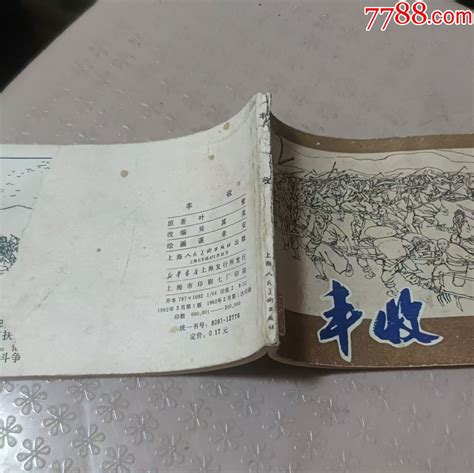 7788.com
丰收
丰收
丰收
原著 叶紫
改编 吴其柔
绘画 谌孝安
上海人民美术出版社出版
新华书店上海发行所发行
上海市印刷七厂印刷
开本 787×1092 1/64
1982年2月第1版 1982年2月第1次印刷
印数 000,001—300,000
统一书号: 8081·12776
定价: 0.17元
上海人民美术出版社
扶
斗争